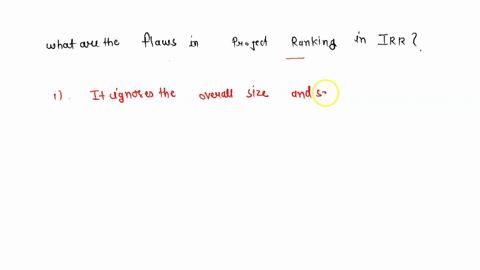 what are the flaws in Project Ranking in IRR?
1). It ignores the overall size and s